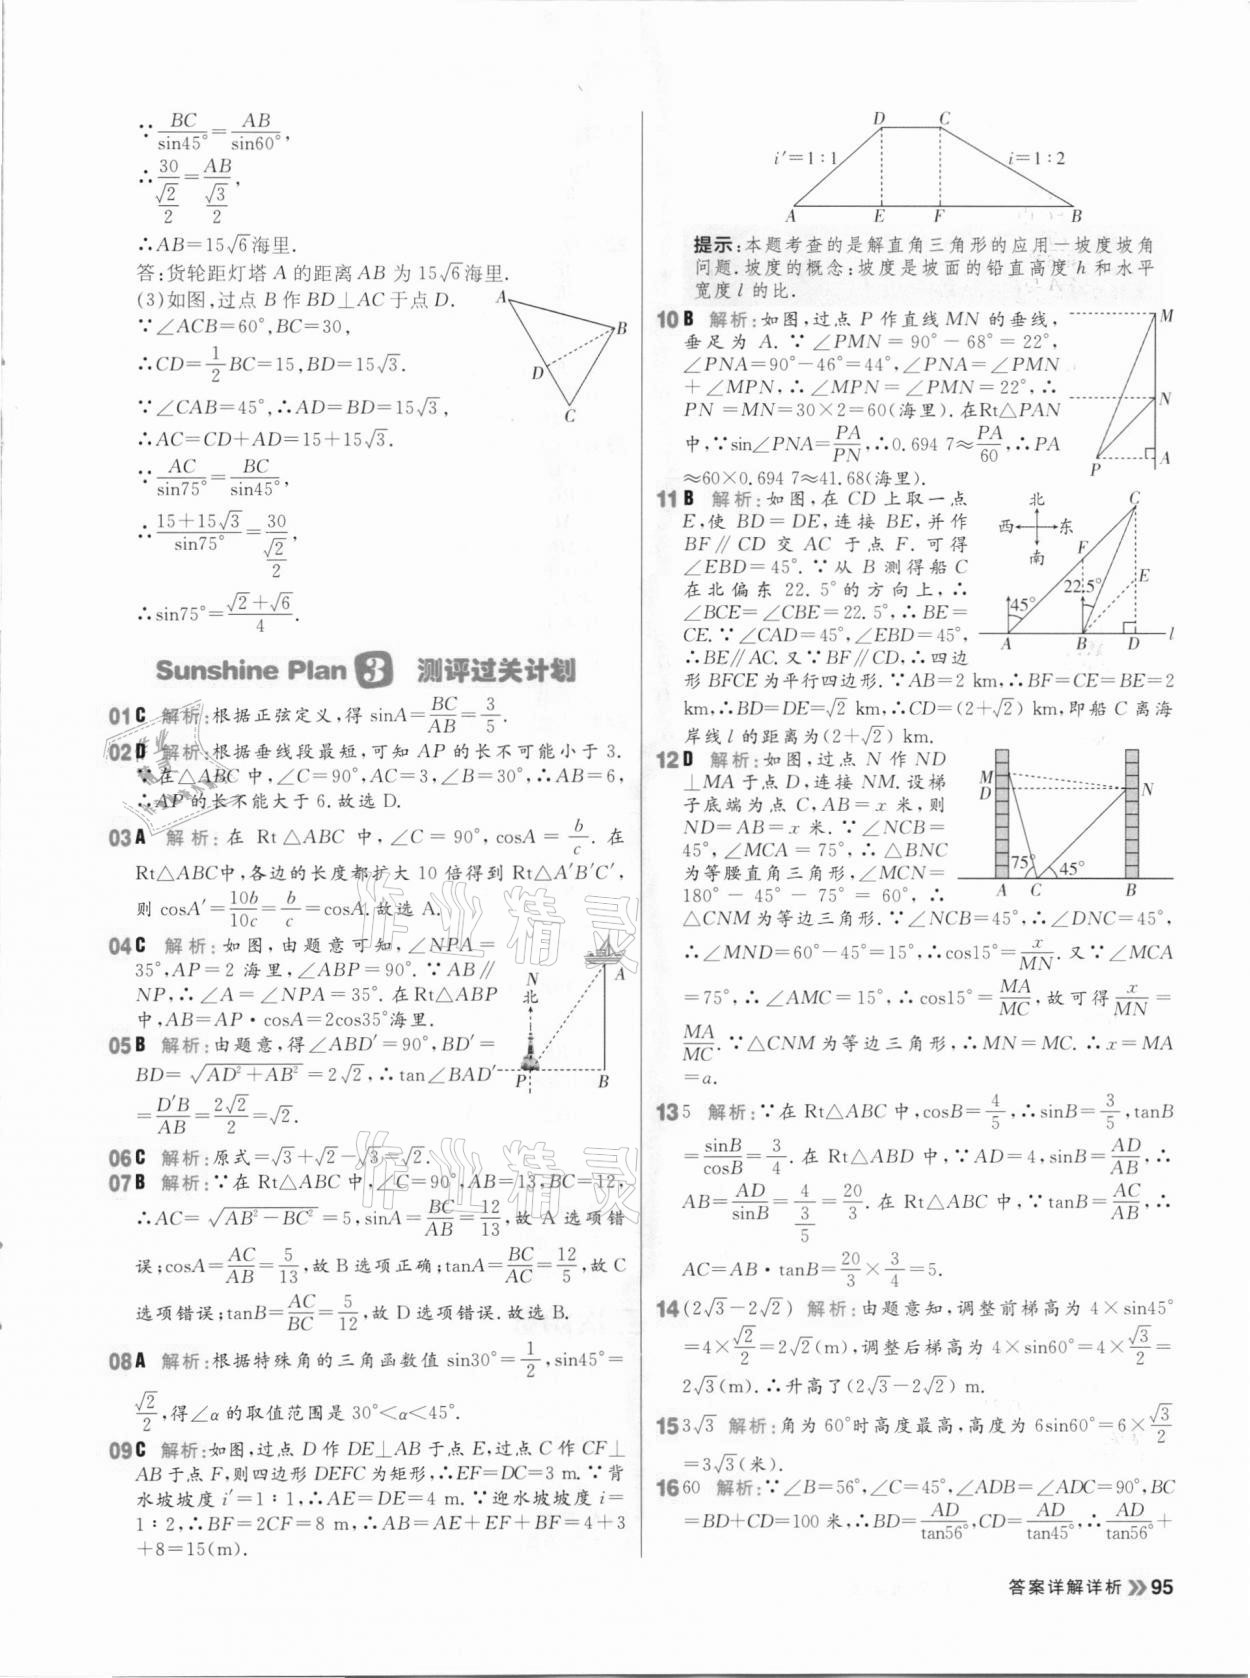 ∵BC/sin45°=AB/sin60°,
∴30/(√2/2)=AB/(√3/2),
∴AB=15√6海里.
答:货轮距灯塔 A 的距离 AB 为 15√6海里.
(3)如图,过点 B 作 BD⊥AC 于点 D.
∵∠ACB=60°,BC=30,
∴CD=1/2BC=15,BD=15√3.
∵∠CAB=45°,∴AD=BD=15√3,
∴AC=CD+AD=15+15√3.
∵AC/sin75°=BC/sin45°,
∴(15+15√3)/sin75°=30/(√2/2),
∴sin75°=(√2+√6)/4.
A
B
D
C
Sunshine Plan 3 测评过关计划
01 C 解析:根据正弦定义,得 sinA=BC/AB=3/5.
02 D 解析:根据垂线段最短,可知 AP 的长不可能小于 3.
∵在△ABC 中,∠C=90°,AC=3,∠B=30°,∴AB=6,
∴AP 的长不能大于 6.故选 D.
03 A 解析:在 Rt△ABC 中,∠C=90°,cosA=b/c.在
Rt△ABC中,各边的长度都扩大 10 倍得到 Rt△A′B′C′,
则 cosA′=10b/10c=b/c=cosA.故选 A.
04 C 解析:如图,由题意可知,∠NPA=
35°,AP=2 海里,∠ABP=90°.∵AB∥
NP,∴∠A=∠NPA=35°.在Rt△ABP
中,AB=AP·cosA=2cos35°海里.
N
北
A
P
B
05 B 解析:由题意,得∠ABD′=90°,BD′=
BD=√(AD²+AB²)=2√2,∴tan∠BAD′
=D′B/AB=2√2/2=√2.
06 C 解析:原式=√3+√2-√3=√2.
07 B 解析:∵在 Rt△ABC 中,∠C=90°,AB=13,BC=12,
∴AC=√(AB²-BC²)=5,sinA=BC/AB=12/13,故 A 选项错
误;cosA=AC/AB=5/13,故 B 选项正确;tanA=BC/AC=12/5,故 C
选项错误;tanB=AC/BC=5/12,故 D 选项错误.故选 B.
08 A 解析:根据特殊角的三角函数值 sin30°=1/2,sin45°=
√2/2,得∠α 的取值范围是 30°<α<45°.
09 C 解析:如图,过点 D 作 DE⊥AB 于点 E,过点 C 作 CF⊥
AB 于点 F,则四边形 DEFC 为矩形,∴EF=DC=3 m.∵背
水坡坡度 i′=1∶1,∴AE=DE=4 m.∵迎水坡坡度 i=
1∶2,∴BF=2CF=8 m,∴AB=AE+EF+BF=4+3
+8=15(m).
D C
i′=1∶1 i=1∶2
A E F B
提示:本题考查的是解直角三角形的应用—坡度坡角
问题.坡度的概念:坡度是坡面的铅直高度 h 和水平
宽度 l 的比.
10 B 解析:如图,过点 P 作直线 MN 的垂线,
垂足为 A.∵∠PMN=90°-68°=22°,
∠PNA=90°-46°=44°,∠PNA=∠PMN
+∠MPN,∴∠MPN=∠PMN=22°,∴
PN=MN=30×2=60(海里).在Rt△PAN
中,∵sin∠PNA=PA/PN,∴0.694 7≈PA/60,∴PA
≈60×0.694 7≈41.68(海里).
M
N
P
A
11 B 解析:如图,在 CD 上取一点
E,使 BD=DE,连接 BE,并作
BF∥CD 交 AC 于点 F.可得
∠EBD=45°.∵从 B 测得船 C
在北偏东 22.5°的方向上,∴
∠BCE=∠CBE=22.5°,∴BE=
CE.∵∠CAD=45°,∠EBD=45°,
∴BE∥AC.又∵BF∥CD,∴四边
形 BFCE 为平行四边形.∵AB=2 km,∴BF=CE=BE=2
km,∴BD=DE=√2 km,∴CD=(2+√2) km,即船 C 离海
岸线 l 的距离为(2+√2) km.
北
西 东
南
C
F
E
45°
22.5°
A B D l
12 D 解析:如图,过点 N 作 ND
⊥MA 于点 D,连接 NM.设梯
子底端为点 C,AB=x 米,则
ND=AB=x 米.∵∠NCB=
45°,∠MCA=75°,∴△BNC
为等腰直角三角形,∠MCN=
180°-45°-75°=60°,∴
△CNM 为等边三角形.∵∠NCB=45°,∴∠DNC=45°,
∴∠MND=60°-45°=15°,∴cos15°=x/MN.又∵∠MCA
=75°,∴∠AMC=15°,∴cos15°=MA/MC,故可得x/MN=
MA/MC.∵△CNM 为等边三角形,∴MN=MC.∴x=MA
=a.
M
D
N
75° 45°
A C B
13 5 解析:∵在 Rt△ABC 中,cosB=4/5,∴sinB=3/5,tanB
=sinB/cosB=3/4.在 Rt△ABD 中,∵AD=4,sinB=AD/AB,∴
AB=AD/sinB=4/(3/5)=20/3.在 Rt△ABC 中,∵tanB=AC/AB,∴
AC=AB·tanB=20/3×3/4=5.
14 (2√3-2√2) 解析:由题意知,调整前梯高为 4×sin45°
=4×√2/2=2√2(m),调整后梯高为 4×sin60°=4×√3/2=
2√3(m).∴升高了(2√3-2√2) m.
15 3√3 解析:角为 60°时高度最高,高度为 6sin60°=6×√3/2
=3√3(米).
16 60 解析:∵∠B=56°,∠C=45°,∠ADB=∠ADC=90°,BC
=BD+CD=100 米,∴BD=AD/tan56°,CD=AD/tan45°,∴AD/tan56°+
答案详解详析 95
作业精灵
作业精灵